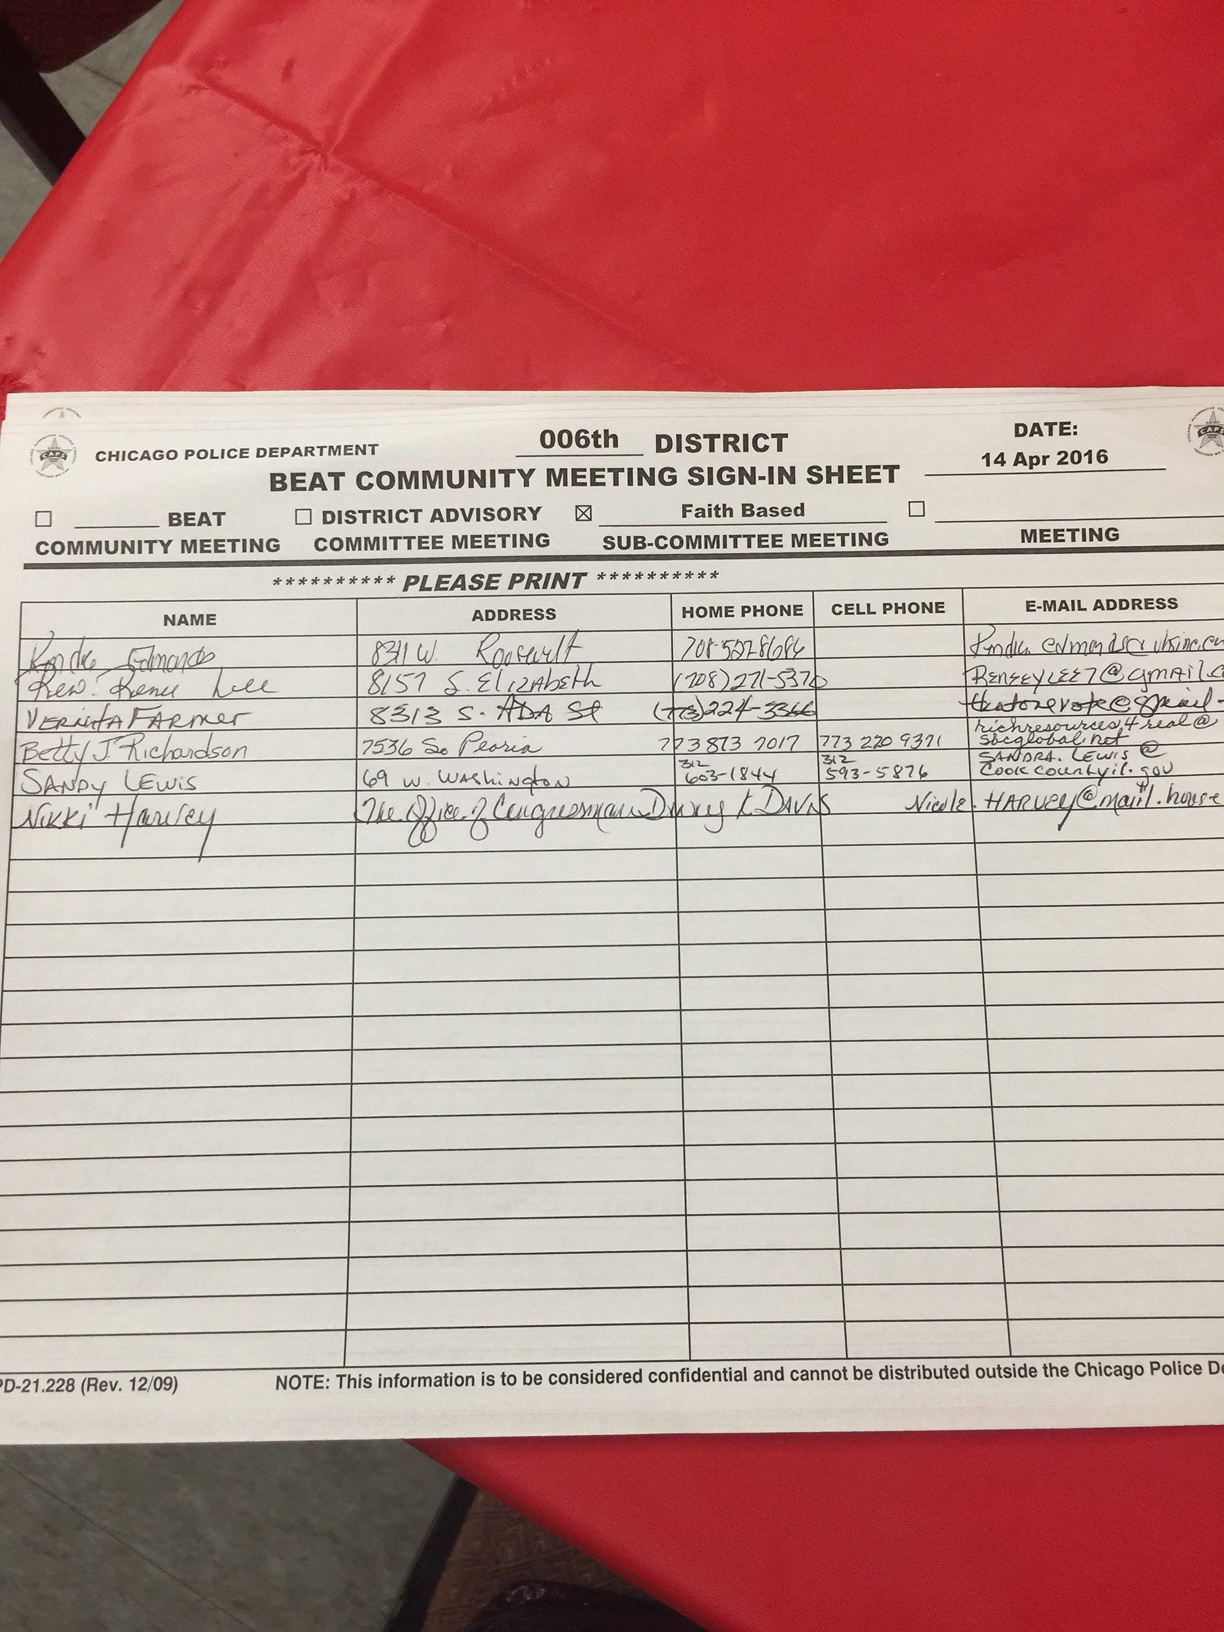 CHICAGO POLICE DEPARTMENT
006th DISTRICT
DATE:
14 Apr 2016
BEAT COMMUNITY MEETING SIGN-IN SHEET
☐ BEAT COMMUNITY MEETING
☐ DISTRICT ADVISORY COMMITTEE MEETING
☒ Faith Based SUB-COMMITTEE MEETING
☐ MEETING
********** PLEASE PRINT **********
NAME ADDRESS HOME PHONE CELL PHONE E-MAIL ADDRESS
Edmonds 8311 W. Roosevelt
Rev. Renee Lee 8157 S. Elizabeth (708) 271-5370 Reneeylee7@gmail.c
VERNITA FARMER 8313 S. ADA St
Betty J. Richardson 7536 So Peoria 773 873 7017 773 220 9371 richresources4real@
sbcglobal.net
SANDY LEWIS 69 W. Washington 312 603-1844 312 593-5876 SANDRA.LEWIS@
cookcountyil.gov
Nikki Harvey The Office of Congressman Danny K Davis Nicole.HARVEY@mail.house
PD-21.228 (Rev. 12/09) NOTE: This information is to be considered confidential and cannot be distributed outside the Chicago Police De